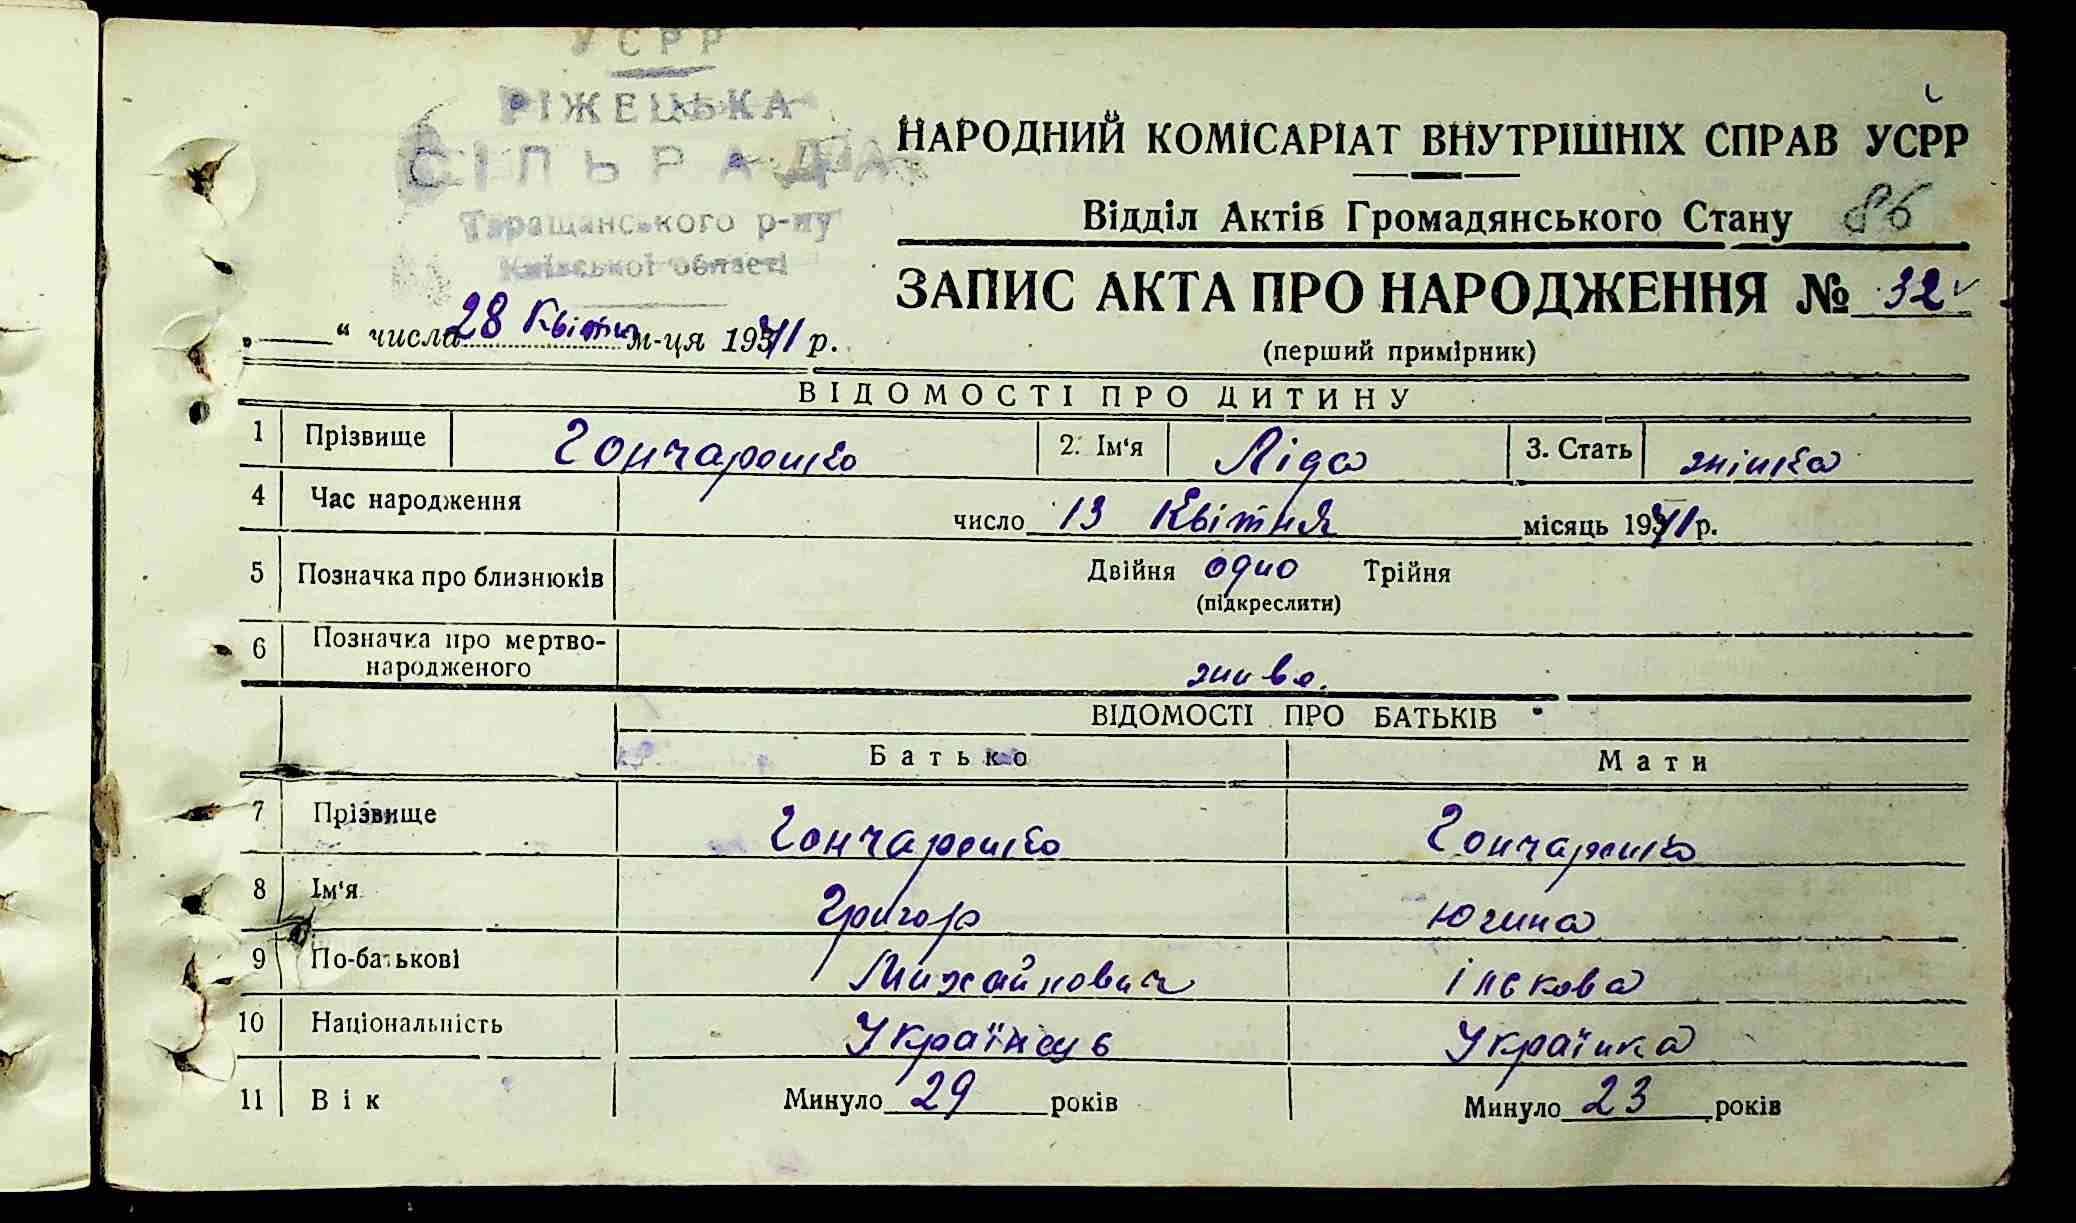 УСРР
РІЖЕЦЬКА
СІЛЬРАДА
Таращанського р-ну
Київської області
НАРОДНИЙ КОМІСАРІАТ ВНУТРІШНІХ СПРАВ УСРР
Відділ Актів Громадянського Стану 86
ЗАПИС АКТА ПРО НАРОДЖЕННЯ № 32
(перший примірник)
" числа 28 Квітня м-ця 1941 р.
ВІДОМОСТІ ПРО ДИТИНУ
1 Прізвище Гончаренко 2. Ім'я Ліда 3. Стать жінка
4 Час народження число 13 Квітня місяць 1941 р.
5 Позначка про близнюків Двійня одно Трійня
(підкреслити)
6 Позначка про мертво-
народженого живе.
ВІДОМОСТІ ПРО БАТЬКІВ
Батько Мати
7 Прізвище Гончаренко Гончаренко
8 Ім'я Григор Югина
9 По-батькові Михайлович Ількова
10 Національність Українець Українка
11 Вік Минуло 29 років Минуло 23 років